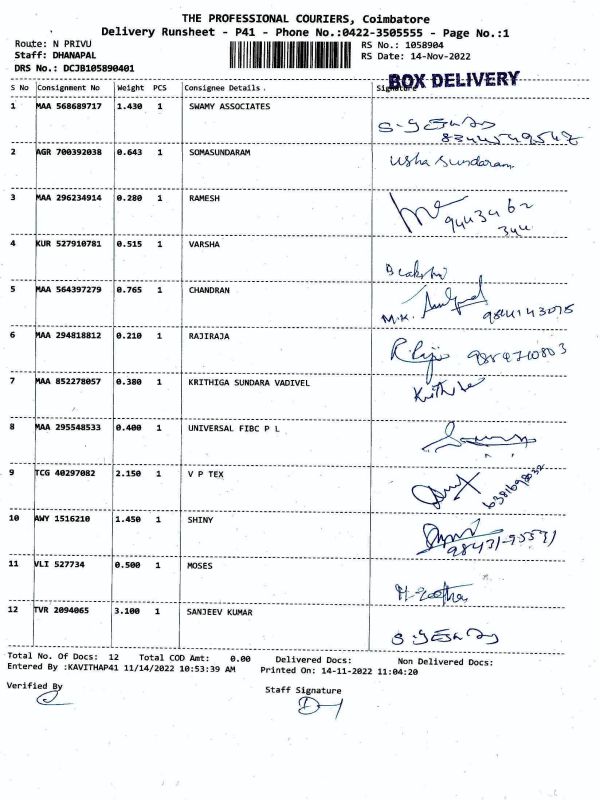 THE PROFESSIONAL COURIERS, Coimbatore
Delivery Runsheet - P41 - Phone No.:0422-3505555 - Page No.:1
Route: N PRIVU RS No.: 1058904
Staff: DHANAPAL RS Date: 14-Nov-2022
DRS No.: DCJB105890401
BOX DELIVERY
S No Consignment No Weight PCS Consignee Details Signature
1 MAA 568689717 1.430 1 SWAMY ASSOCIATES
2 AGR 700392038 0.643 1 SOMASUNDARAM Usha Sundaram
3 MAA 296234914 0.280 1 RAMESH 9443462
344
4 KUR 527910781 0.515 1 VARSHA
5 MAA 564397279 0.765 1 CHANDRAN M.K.
6 MAA 294818812 0.210 1 RAJIRAJA
7 MAA 852278057 0.380 1 KRITHIGA SUNDARA VADIVEL
8 MAA 295548533 0.400 1 UNIVERSAL FIBC P L
9 TCG 40297082 2.150 1 V P TEX
10 AWY 1516210 1.450 1 SHINY
11 VLI 527734 0.500 1 MOSES
12 TVR 2094065 3.100 1 SANJEEV KUMAR
Total No. Of Docs: 12 Total COD Amt: 0.00 Delivered Docs: Non Delivered Docs:
Entered By :KAVITHAP41 11/14/2022 10:53:39 AM Printed On: 14-11-2022 11:04:20
Verified By
Staff Signature